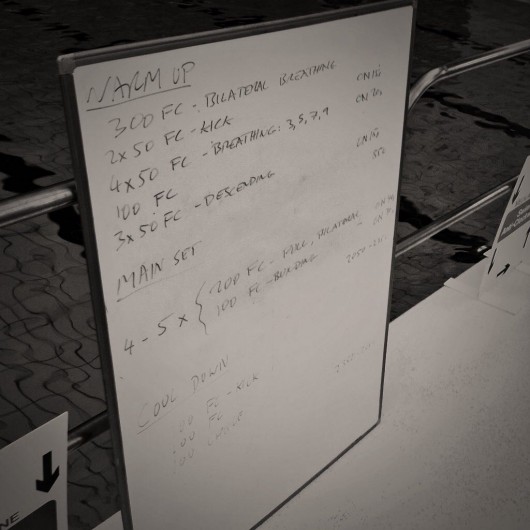 WARM UP
300 FC - BILATERAL BREATHING
2x50 FC - KICK ON 15
4x50 FC - BREATHING: 3,5,7,9 ON 20
100 FC
3x50 FC - DESCENDING ON 15
850
MAIN SET
4-5 x { 200 FC - PULL, BILATERAL
100 FC - BUILDING
COOL DOWN
FC - KICK
FC
CHOICE
NE